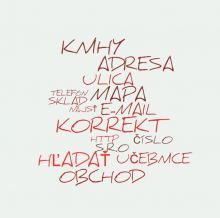 KNIHY
ADRESA
ULICA
TELEFON MAPA
SKLAD
NÁJSŤ E-MAIL
KORREKT
HTTP ČÍSLO
S.R.O
HĽADAŤ UČEBNICE
OBCHOD